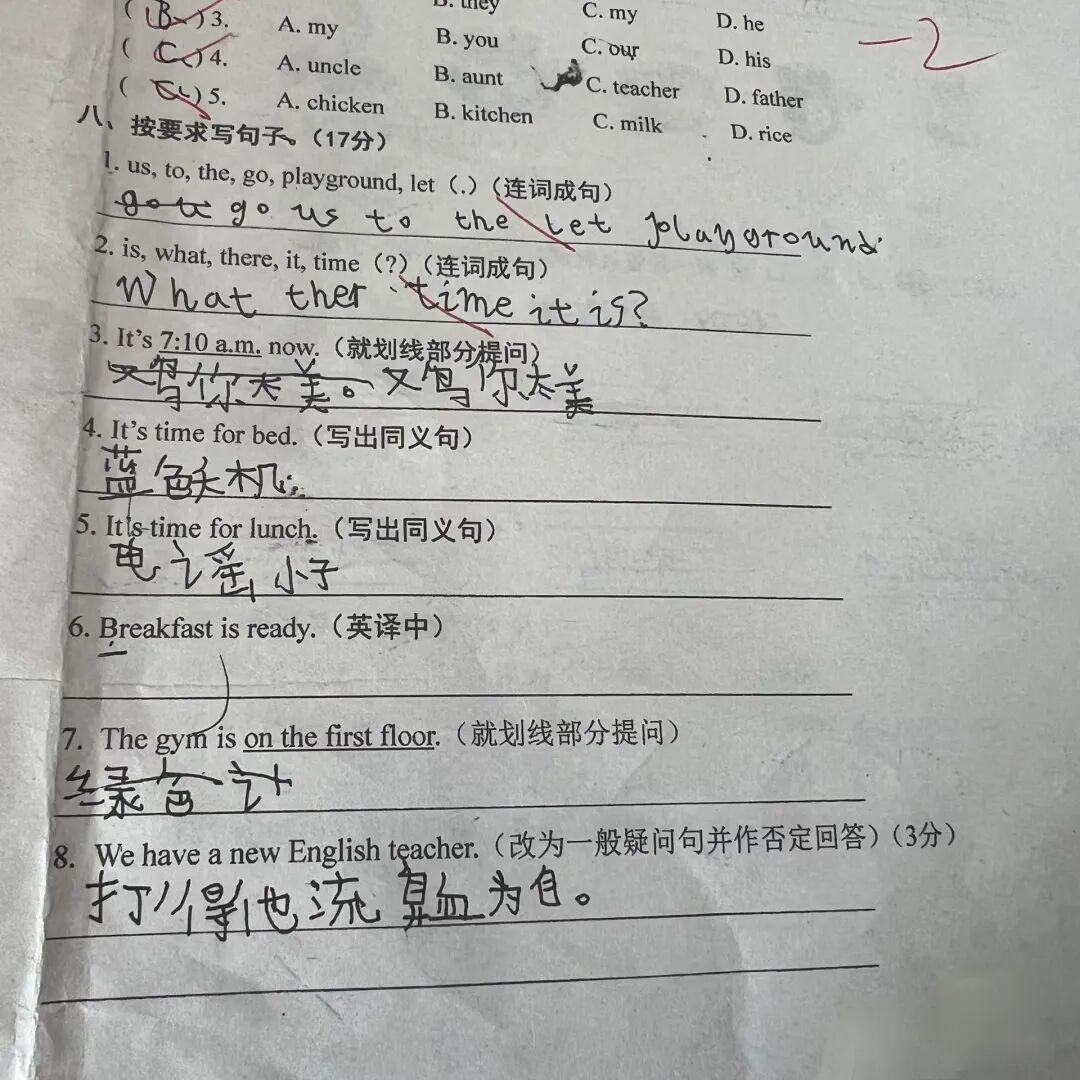 B. they C. my D. he
( B ) 3. A. my B. you C. our D. his
( C ) 4. A. uncle B. aunt C. teacher D. father
( C ) 5. A. chicken B. kitchen C. milk D. rice
-2
八、按要求写句子。(17分)
1. us, to, the, go, playground, let (.)(连词成句)
go us to the let playground
2. is, what, there, it, time (?)(连词成句)
What ther time it is?
3. It's 7:10 a.m. now.(就划线部分提问)
你太美。又 你太美
4. It's time for bed.(写出同义句)
蓝色 机
5. It's time for lunch.(写出同义句)
电 小子
6. Breakfast is ready.(英译中)
7. The gym is on the first floor.(就划线部分提问)
绿色
8. We have a new English teacher.(改为一般疑问句并作否定回答)(3分)
打 得他流 血为自。